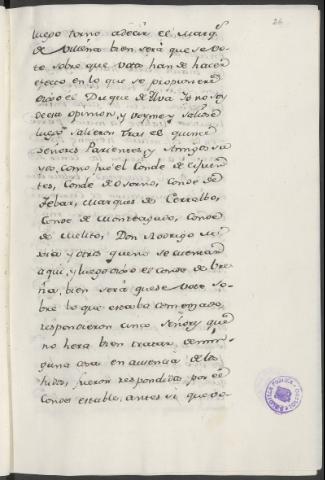 26
luego torno a decir el Marqs
de Villena bien será que se vo-
te sobre que votos han de hacer
efecto en lo que se propusiere
dixo el Duque de Alva Yo no soy
de esa opinion, y voyme y saliose
luego salieron tras el quince
señores Parientes, y Amigos su-
yos, como fue el Conde de Cifuen-
tes, Conde de Osorno, Conde de
Tebar, Marques de Cerralbo,
Conde de Monteagudo, Conde
de Melito, Don Rodrigo Me-
xia y otros que no se cuentan
aqui, y luego dixo el Conde de Ure-
ña, bien será que se vote so-
bre lo que estaba comenzado,
respondieron cinco Señores que
no hera bien tratar de nin-
guna cosa en ausencia de los
hidos, fueron respondidos por el
Condestable, antes si que se